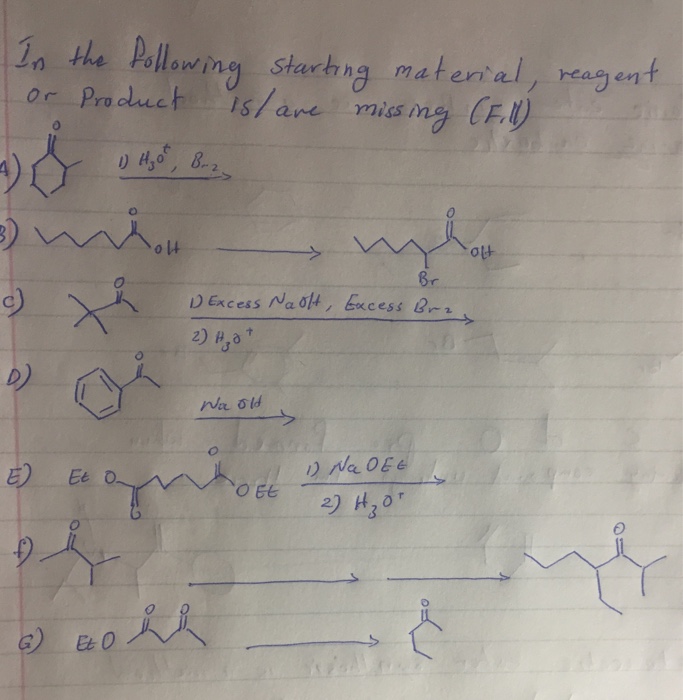 In the following starting material, reagent
or Product is/are missing (Fill)
A) O 1) H3O+, Br2
B) O OH O OH Br
C) O 1) Excess NaOH, Excess Br2
2) H3O+
D) O NaOH
E) Et O O O OEt 1) NaOEt
2) H3O+
f) O O
G) EtO O O O